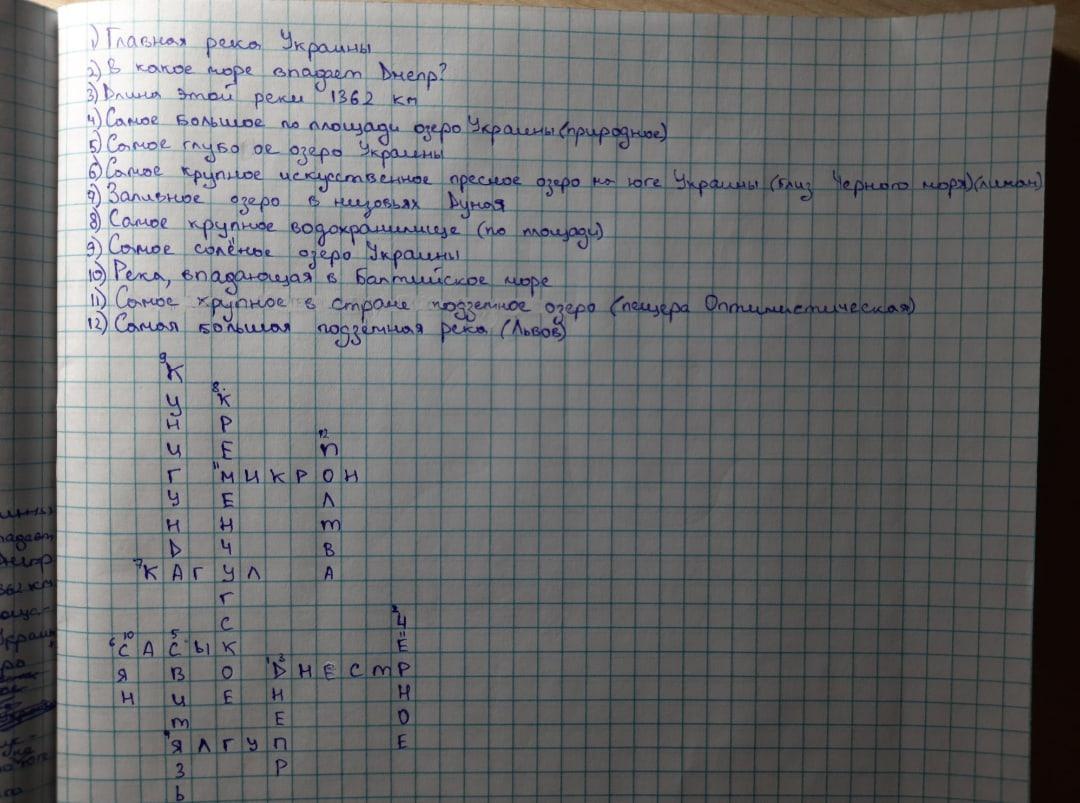 1) Главная река Украины
2) В какое море впадает Днепр?
3) Длина этой реки 1362 км
4) Самое большое по площади озеро Украины (природное)
5) Самое глубо ое озеро Украины
6) Самое крупное искусственное пресное озеро на юге Украины (близ Черного моря) (лиман)
7) Заливное озеро в низовьях Дуная
8) Самое крупное водохранилище (по площади)
9) Самое солёное озеро Украины
10) Река, впадающая в Балтийское море
11) Самое крупное в стране подземное озеро (пещера Оптимистическая)
12) Самая большая подземная река (Львов)
9 К
У 8. К
Н Р
И Е 12 П
Г 11 М И К Р О Н
У Е Л
Н Н Т
Д Ч В
7 К А Г У Л А
Г
С 2 Ч
6 10 С А 5 С Ы К Ё
Я В О 1 3 Д Н Е С Т Р
Н И Е Н Н
Т Е О
4 Я Л Г У П Е
З Р
Ь